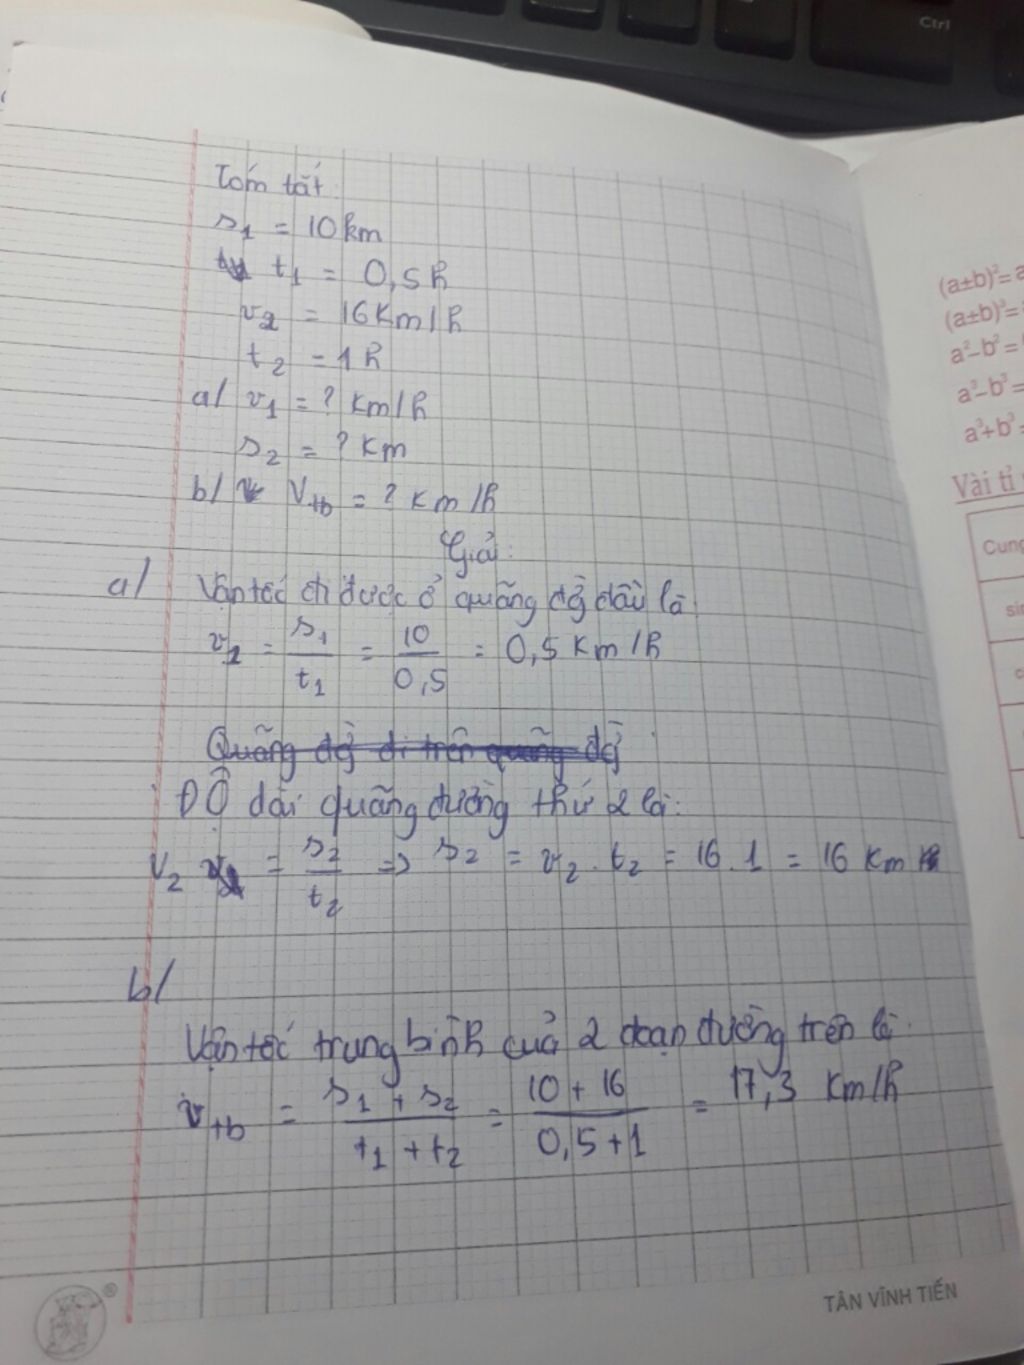 Ctrl
Tóm tắt:
s₁ = 10km
t₁ = 0,5h
v₂ = 16km/h
t₂ = 1h
a/ v₁ = ? km/h
s₂ = ? km
b/ Vtb = ? km/h
Giải:
a/ Vận tốc đi được ở quãng đg đầu là
v₁ = s₁/t₁ = 10/0,5 = 0,5 km/h
Quãng đg đi trên quãng đg
Độ dài quãng đường thứ 2 là:
V₂ = s₂/t₂ => s₂ = v₂ . t₂ = 16 . 1 = 16 km
b/
Vận tốc trung bình cuả 2 đoạn đường trên là
vtb = s₁ + s₂/t₁ + t₂ = 10 + 16/0,5 + 1 = 17,3 km/h
TÂN VĨNH TIẾN
®
(a±b)²= a
(a±b)³=
a²–b²=
a³–b³=
a³+b³=
Vài tỉ
Cung
sin